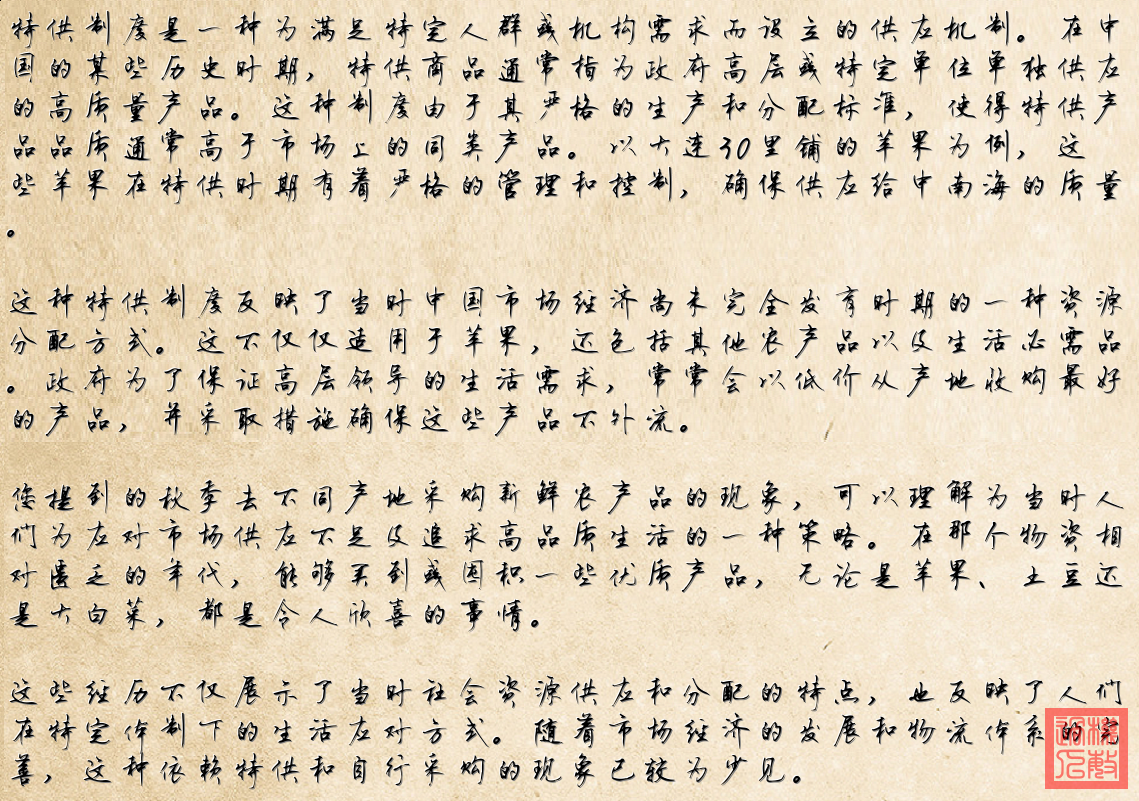 特供制度是一种为满足特定人群或机构需求而设立的供应机制。 在中
国的某些历史时期，特供商品通常指为政府高层或特定单位单独供应
的高质量产品。这种制度由于其严格的生产和分配标准，使得特供产
品品质通常高于市场上的同类产品。以大连30里铺的苹果为例，这
些苹果在特供时期有着严格的管理和控制，确保供应给中南海的质量
。
这种特供制度反映了当时中国市场经济尚未完全发育时期的一种资源
分配方式。这不仅仅适用于苹果，还包括其他农产品以及生活必需品
。政府为了保证高层领导的生活需求，常常会以低价从产地收购最好
的产品，并采取措施确保这些产品不外流。
您提到的秋季去不同产地采购新鲜农产品的现象，可以理解为当时人
们为应对市场供应不足及追求高品质生活的一种策略。在那个物资相
对匮乏的年代，能够买到或囤积一些优质产品，无论是苹果、土豆还
是大白菜，都是令人欣喜的事情。
这些经历不仅展示了当时社会资源供应和分配的特点，也反映了人们
在特定体制下的生活应对方式。随着市场经济的发展和物流体系的完
善，这种依赖特供和自行采购的现象已较为少见。